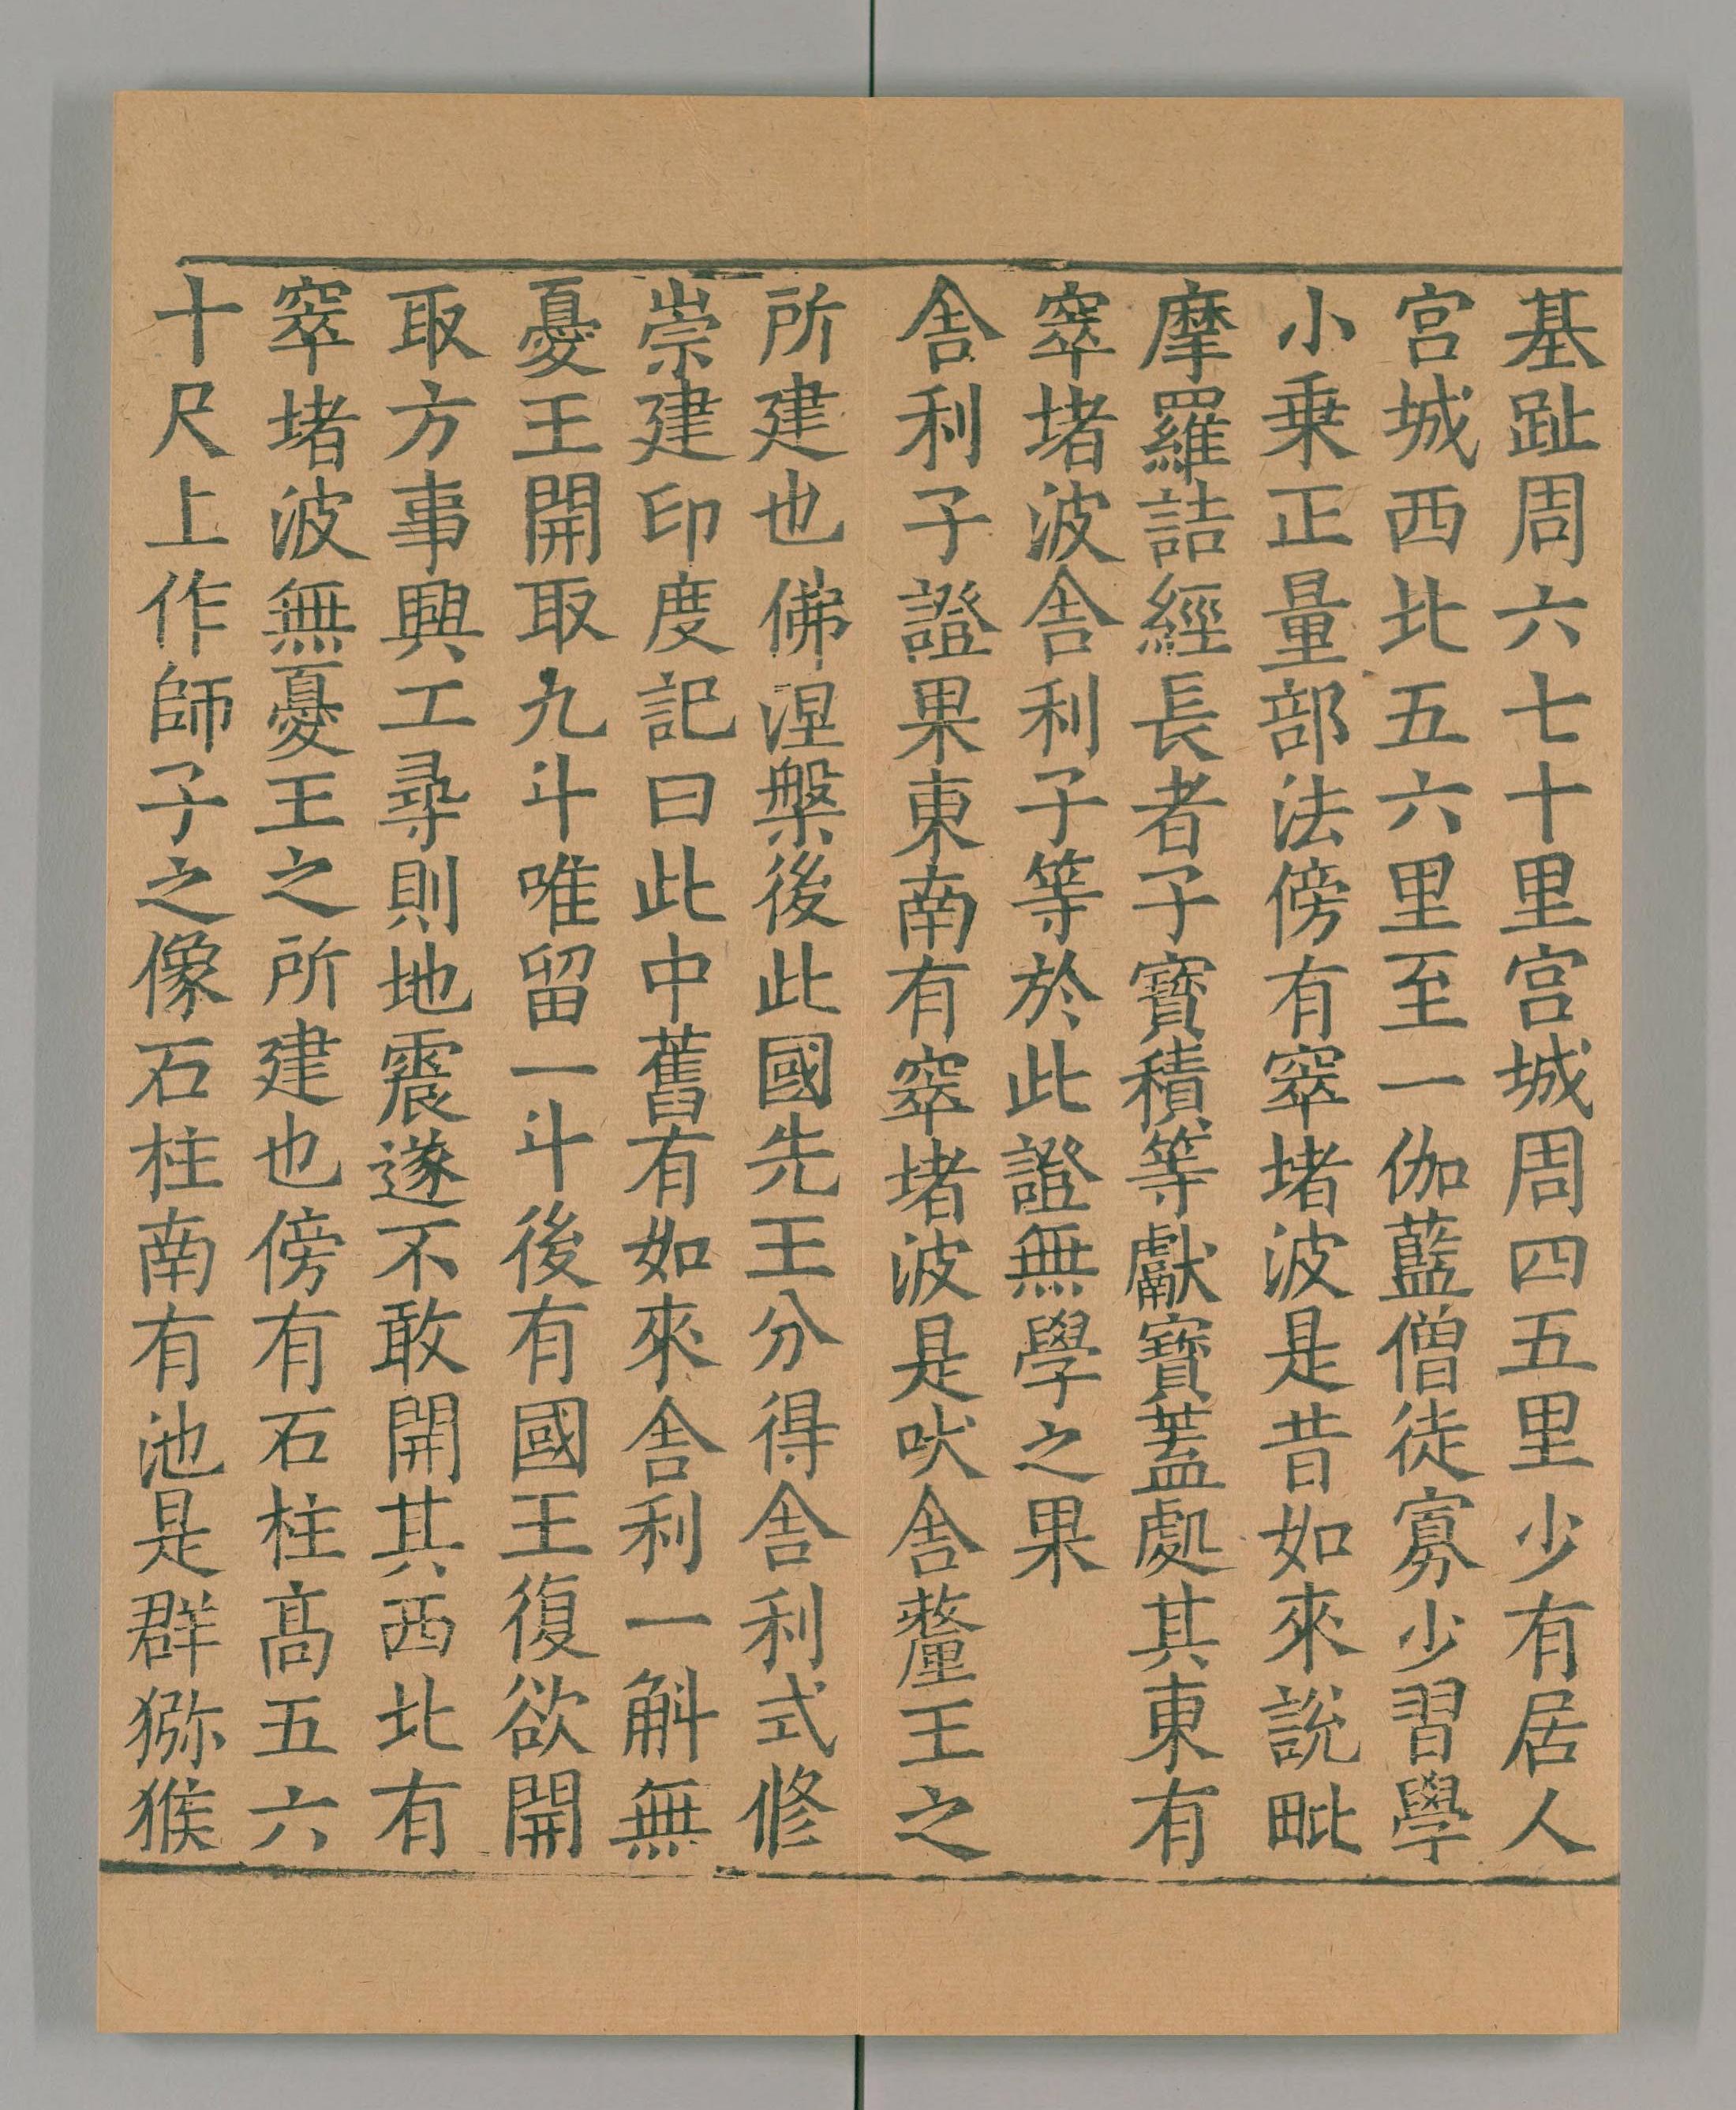 基趾周六七十里宮城周四五里少有居人
宮城西北五六里至一伽藍僧徒寡少習學
小乗正量部法傍有窣堵波是昔如來說毗
摩羅詰經長者子寶積等獻寶蓋處其東有
窣堵波舍利子等於此證無學之果
舍利子證果東南有窣堵波是吠舍釐王之
所建也佛涅槃後此國先王分得舍利式修
崇建印度記曰此中舊有如來舍利一斛無
憂王開取九斗唯留一斗後有國王復欲開
取方事興工尋則地震遂不敢開其西北有
窣堵波無憂王之所建也傍有石柱高五六
十尺上作師子之像石柱南有池是群猕猴